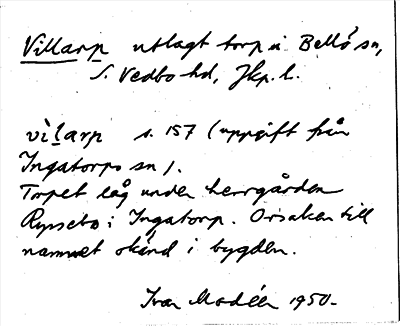 Villarp utlagt torp i Bellö sn,
S. Vedbo hd, Jkp. l.
vilarp s. 157 (uppgift från
Ingatorps sn).
Torpet låg under herrgården
i Ingatorp. Orsaken till
namnet okänd i bygden.
Ivar Modéer 1950-